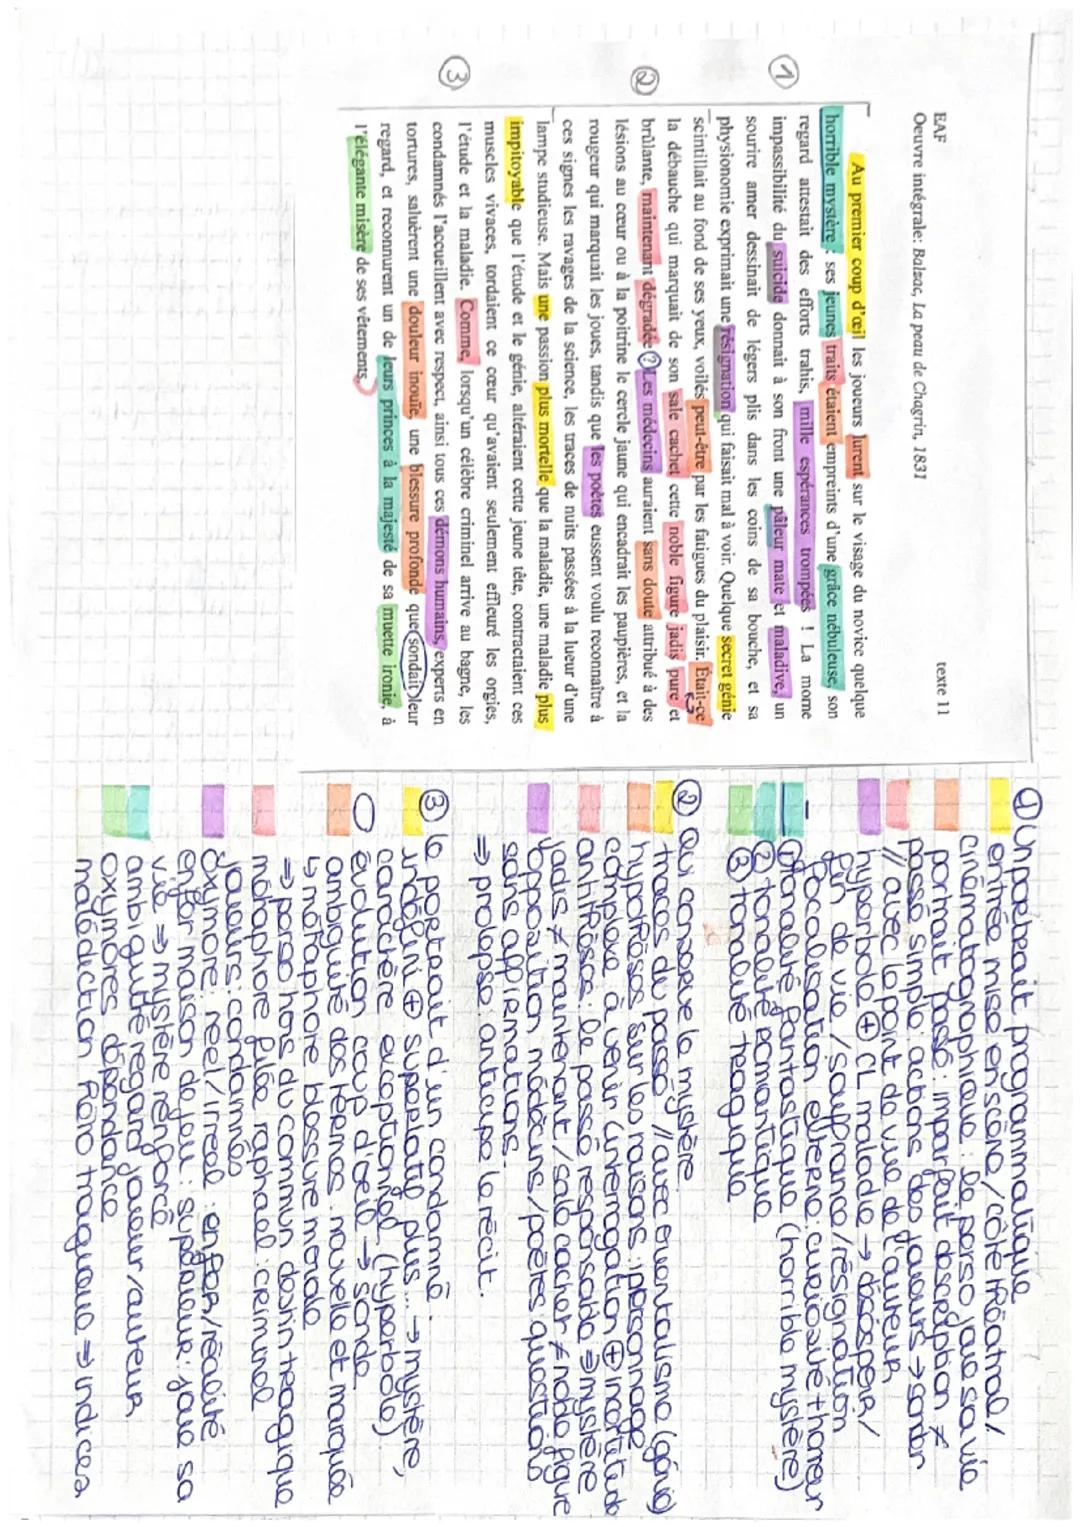 EAF texte 11
Oeuvre intégrale: Balzac, La peau de Chagrin, 1831
Au premier coup d'œil les joueurs lurent sur le visage du novice quelque
horrible mystère : ses jeunes traits étaient empreints d'une grâce nébuleuse, son
regard attestait des efforts trahis, mille espérances trompées ! La morne
① impassibilité du suicide donnait à son front une pâleur mate et maladive, un
sourire amer dessinait de légers plis dans les coins de sa bouche, et sa
physionomie exprimait une résignation qui faisait mal à voir. Quelque secret génie
scintillait au fond de ses yeux, voilés peut-être par les fatigues du plaisir. Était-ce
la débauche qui marquait de son sale cachet cette noble figure jadis pure et
② brûlante, maintenant dégradée ? Les médecins auraient sans doute attribué à des
lésions au cœur ou à la poitrine le cercle jaune qui encadrait les paupières, et la
rougeur qui marquait les joues, tandis que les poètes eussent voulu reconnaître à
ces signes les ravages de la science, les traces de nuits passées à la lueur d'une
lampe studieuse. Mais une passion plus mortelle que la maladie, une maladie plus
impitoyable que l'étude et le génie, altéraient cette jeune tête, contractaient ces
muscles vivaces, tordaient ce cœur qu'avaient seulement effleuré les orgies,
③ l'étude et la maladie. Comme, lorsqu'un célèbre criminel arrive au bagne, les
condamnés l'accueillent avec respect, ainsi tous ces démons humains, experts en
tortures, saluèrent une douleur inouïe, une blessure profonde que sondait leur
regard, et reconnurent un de leurs princes à la majesté de sa muette ironie, à
l'élégante misère de ses vêtements.
① Un portrait programmatique
entrée mise en scène / côté théatral /
cinématographique : le perso joue sa vie
portrait passé : imparfait description ≠
passé simple : actions des joueurs → sonder
// avec le point de vue de l'auteur
hyperbole ⊕ CL maladie → désespoir /
fin de vie / souffrance / résignation
focalisation externe : curiosité + horreur
① tonalité fantastique (horrible mystère)
② tonalité romantique
③ tonalité tragique
② qui conserve le mystère
traces du passé // avec orientalisme (génie)
hypothèses sur les raisons : personnage
complexe à venir (interrogation ⊕ incertitude
antithèses : le passé responsable ⇒ mystère
jadis ≠ maintenant / sale cachet ≠ noble figure
opposition médecins / poètes : questions
sans affirmations.
⇒ prolepse : anticipe le récit.
③ le portrait d'un condamné
indéfini ⊕ superlatif plus... → mystère,
caractère exceptionnel (hyperbole)
évolution coup d'oeil → sonde
ambiguité des termes : nouvelle et marquée
↳ métaphore blessure morale
⇒ perso hors du commun destin tragique
métaphore filée raphael : criminel
joueurs : condamnés
oxymore : réel / irréel : enfer / réalité
enfer maison de jeu : supérieur : joue sa
vie ⇒ mystère renforcé
ambiguité regard joueur / auteur
oxymores dépendance
malédiction héro tragique ⇒ indices